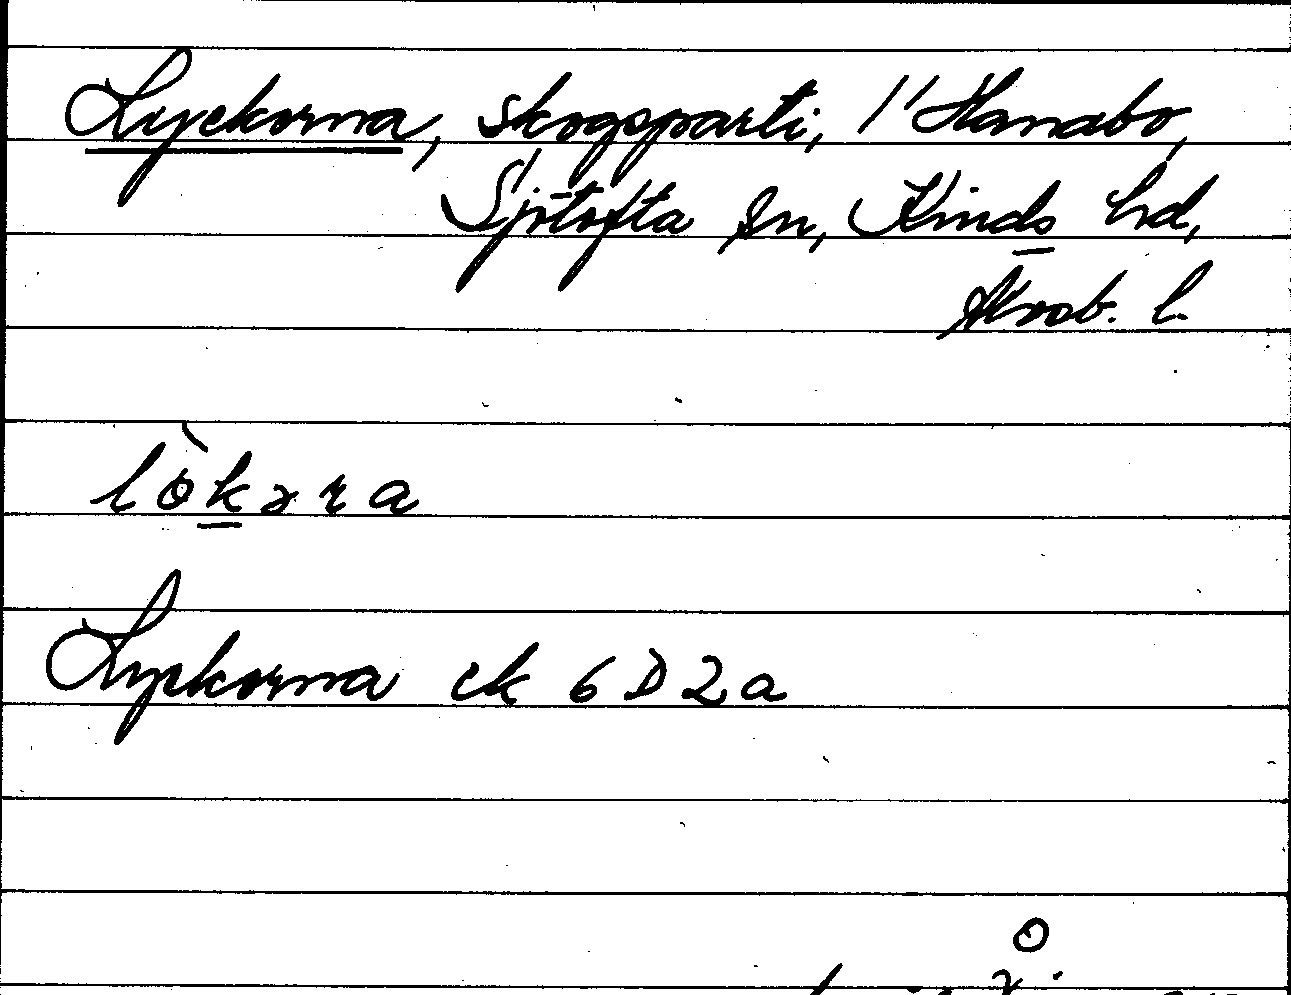 Lyckorna, skogsparti, 1/1 Hanabo,
Sjötofta sn, Kinds hd,
Älvsb. l.
lòkəra
Lyckorna ek 6D2a